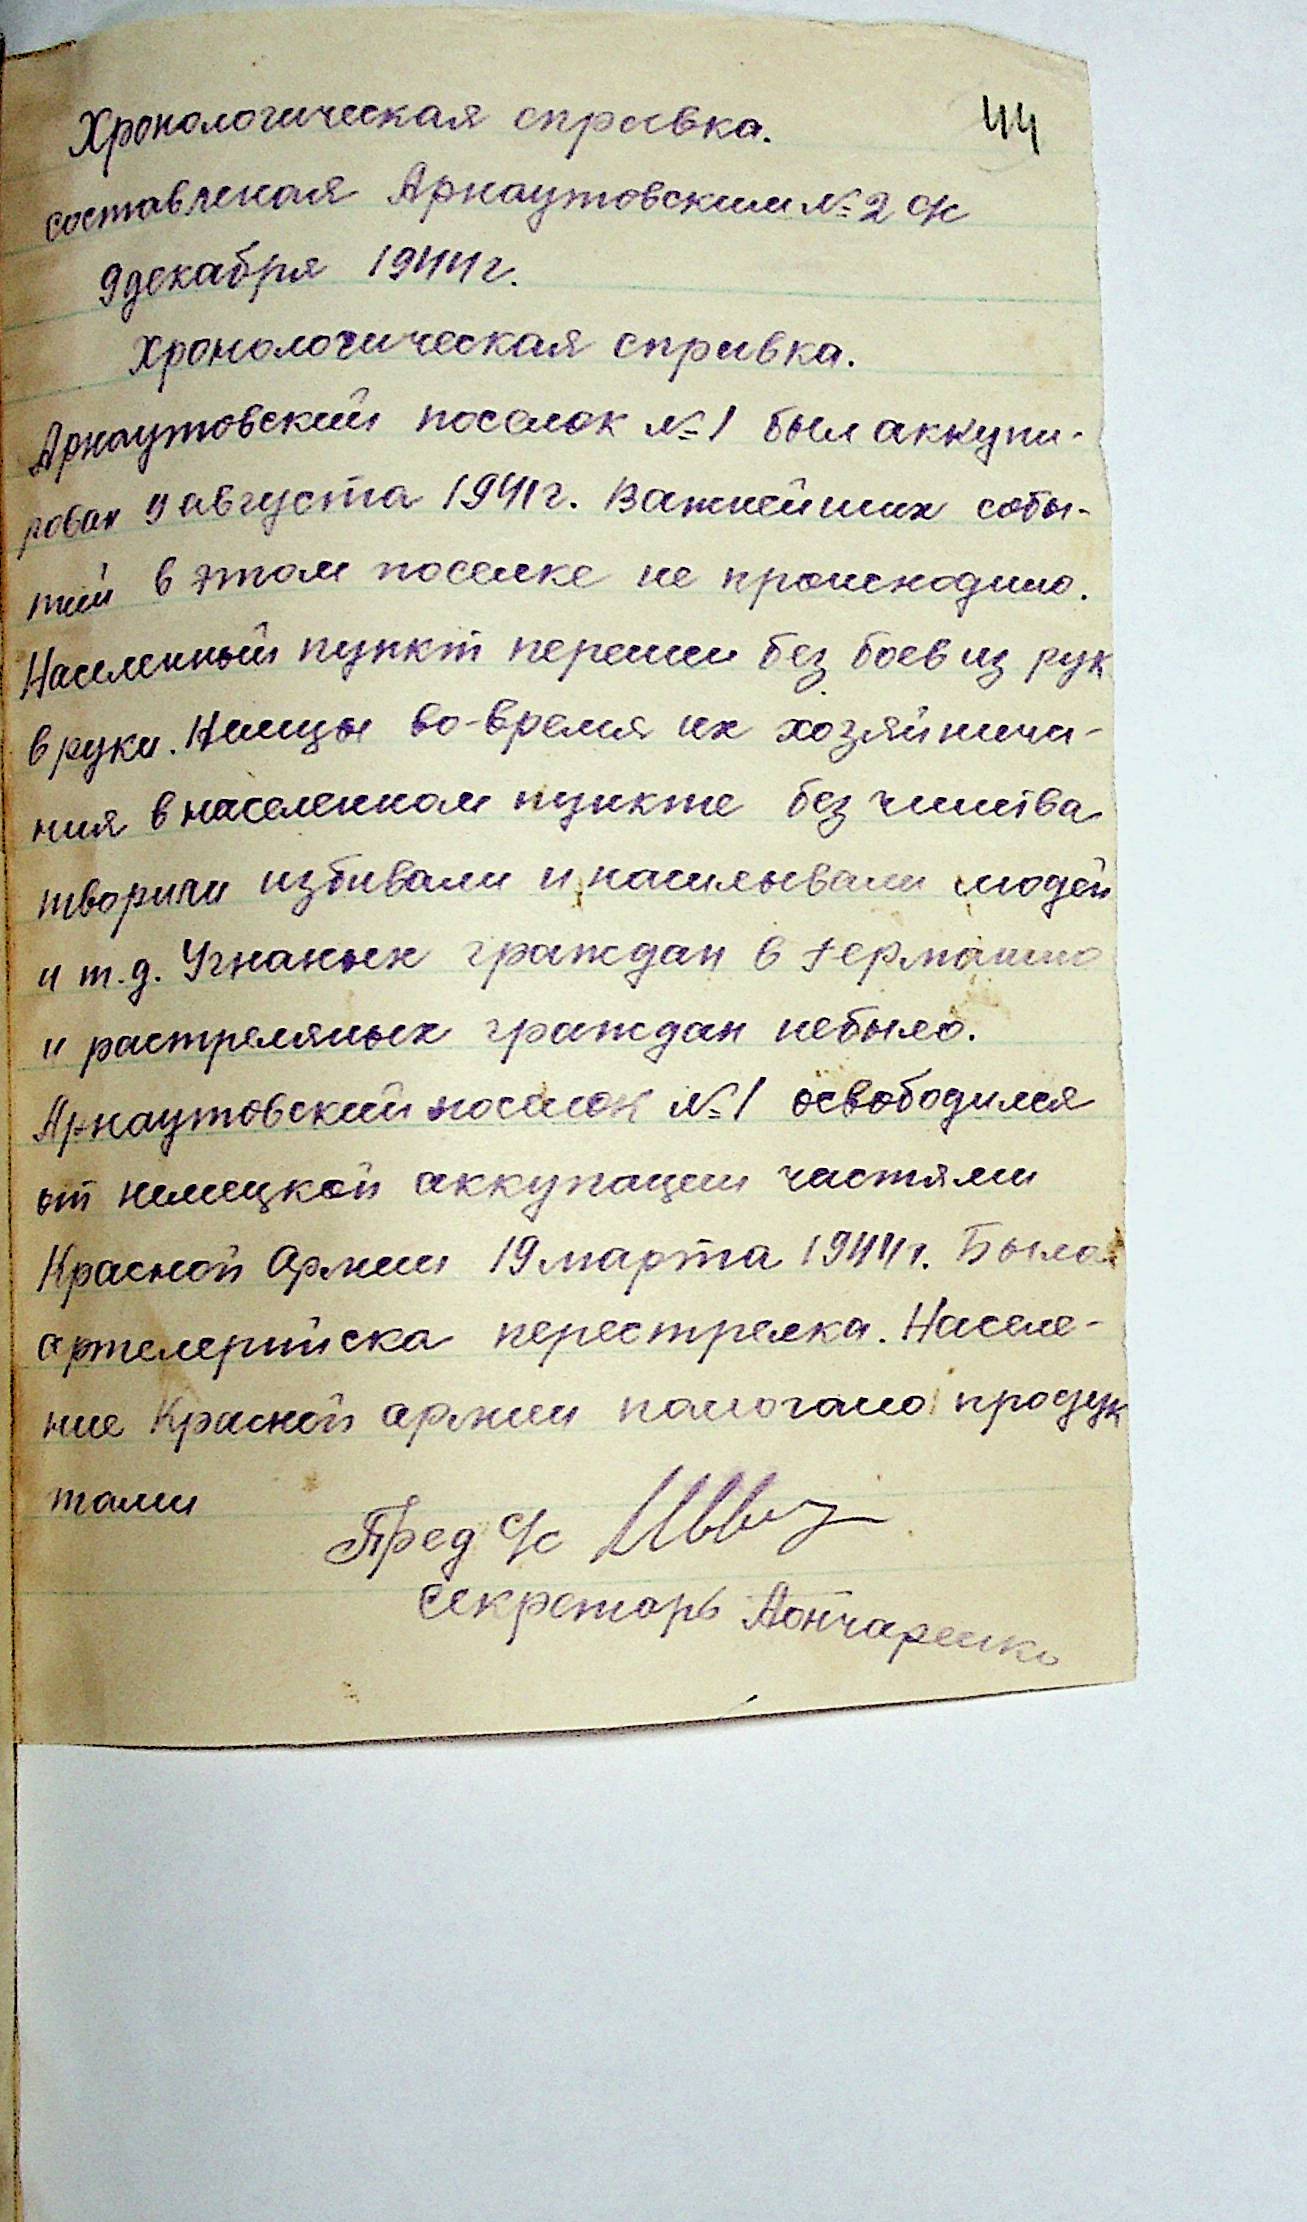 44
Хронологическая справка.
составленая Арнаутовским № 2 с/с
9 декабря 1944 г.
Хронологическая справка.
Арнаутовский поселок № 1 был аккупи-
рован 9 августа 1941 г. Важнейших собы-
тий в этом поселке не происходило.
Населенный пункт перешел без боев из рук
в руки. Немцы во-время их хозяйнича-
ния в населенном пункте без чинства
творили избивали и насиловали людей
и т.д. Угнаных граждан в Германию
и растреляных граждан небыло.
Арнаутовский поселок № 1 освободился
от немецкой аккупации частями
Красной Армии 19 марта 1944 г. Была
артелерийска перестрелка. Населе-
ние Красной армии помогало продук
тами
Пред с/с
Секретарь Гончаренко